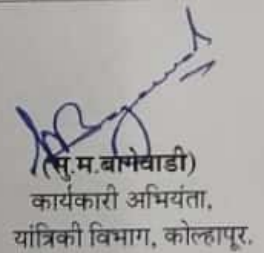 (सु.म.बागेवाडी)
कार्यकारी अभियंता,
यांत्रिकी विभाग, कोल्हापूर.